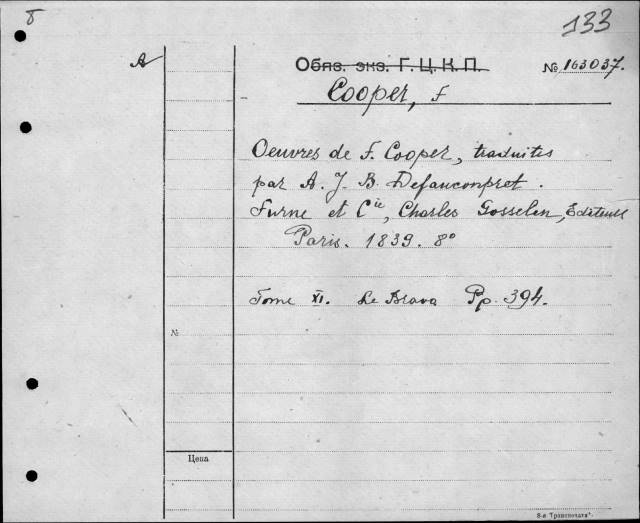 133
A
Обяз. экз. Г.Ц.К.П. № 163037.
Cooper, F
Oeuvres de F. Cooper, traduites
par A. J. B. Defauconpret.
Furne et Cie, Charles Gosselen, Editeurs
Paris. 1839. 8°
Tome XI. Le Bravo Pp. 394.
№
Цена
8-я "Транспечати".